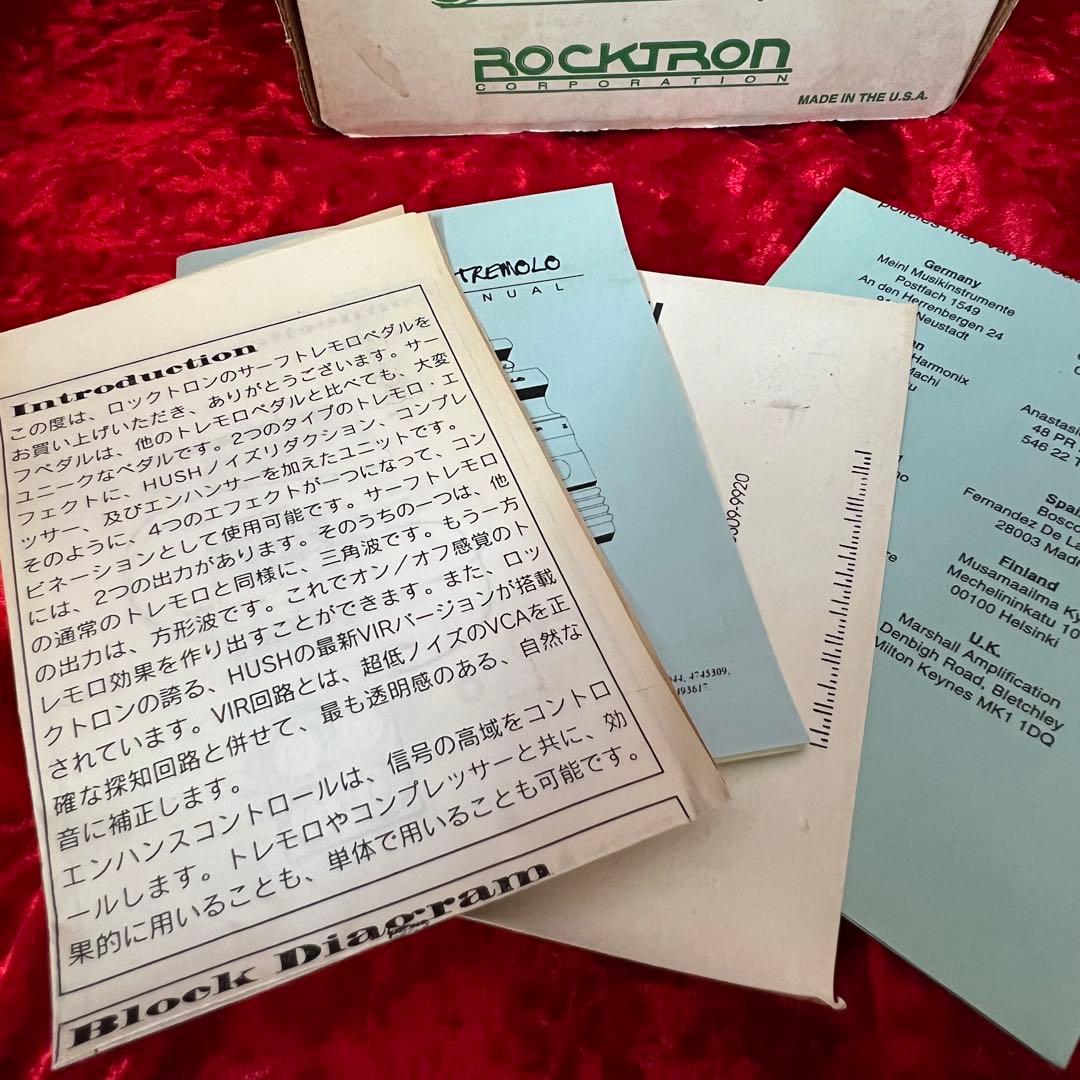 ROCKTRON
CORPORATION
MADE IN THE U.S.A.
Introduction
この度は、ロックトロンのサーフトレモロペダルを
お買い上げいただき、ありがとうございます。サー
フペダルは、他のトレモロペダルと比べても、大変
ユニークなペダルです。2つのタイプのトレモロ・エ
フェクトに、HUSHノイズリダクション、コンプレ
ッサー、及びエンハンサーを加えたユニットです。
そのように、4つのエフェクトが一つになって、コン
ビネーションとして使用可能です。サーフトレモロ
には、2つの出力があります。そのうちの一つは、他
の通常のトレモロと同様に、三角波です。もう一方
の出力は、方形波です。これでオン/オフ感覚のト
レモロ効果を作り出すことができます。また、ロッ
クトロンの誇る、HUSHの最新VIRバージョンが搭載
されています。VIR回路とは、超低ノイズのVCAを正
確な探知回路と併せて、最も透明感のある、自然な
音に補正します。
エンハンスコントロールは、信号の高域をコントロ
ールします。トレモロやコンプレッサーと共に、効
果的に用いることも、単体で用いることも可能です。
Block Diagram
TREMOLO
NUAL
44, 4745309,
493617.
policies may vary in
Germany
Meinl Musikinstrumente
Postfach 1549
An den Herrenbergen 24
Neustadt
Harmonix
Machi
Anastasi
48 PR
546 22 T
Spai
Bosco
Fernandez De La
28003 Madi
Finland
Musamaailma Ky
Mechelininkatu 10
00100 Helsinki
U.K.
Marshall Amplification
Denbigh Road, Bletchley
Milton Keynes MK1 1DQ